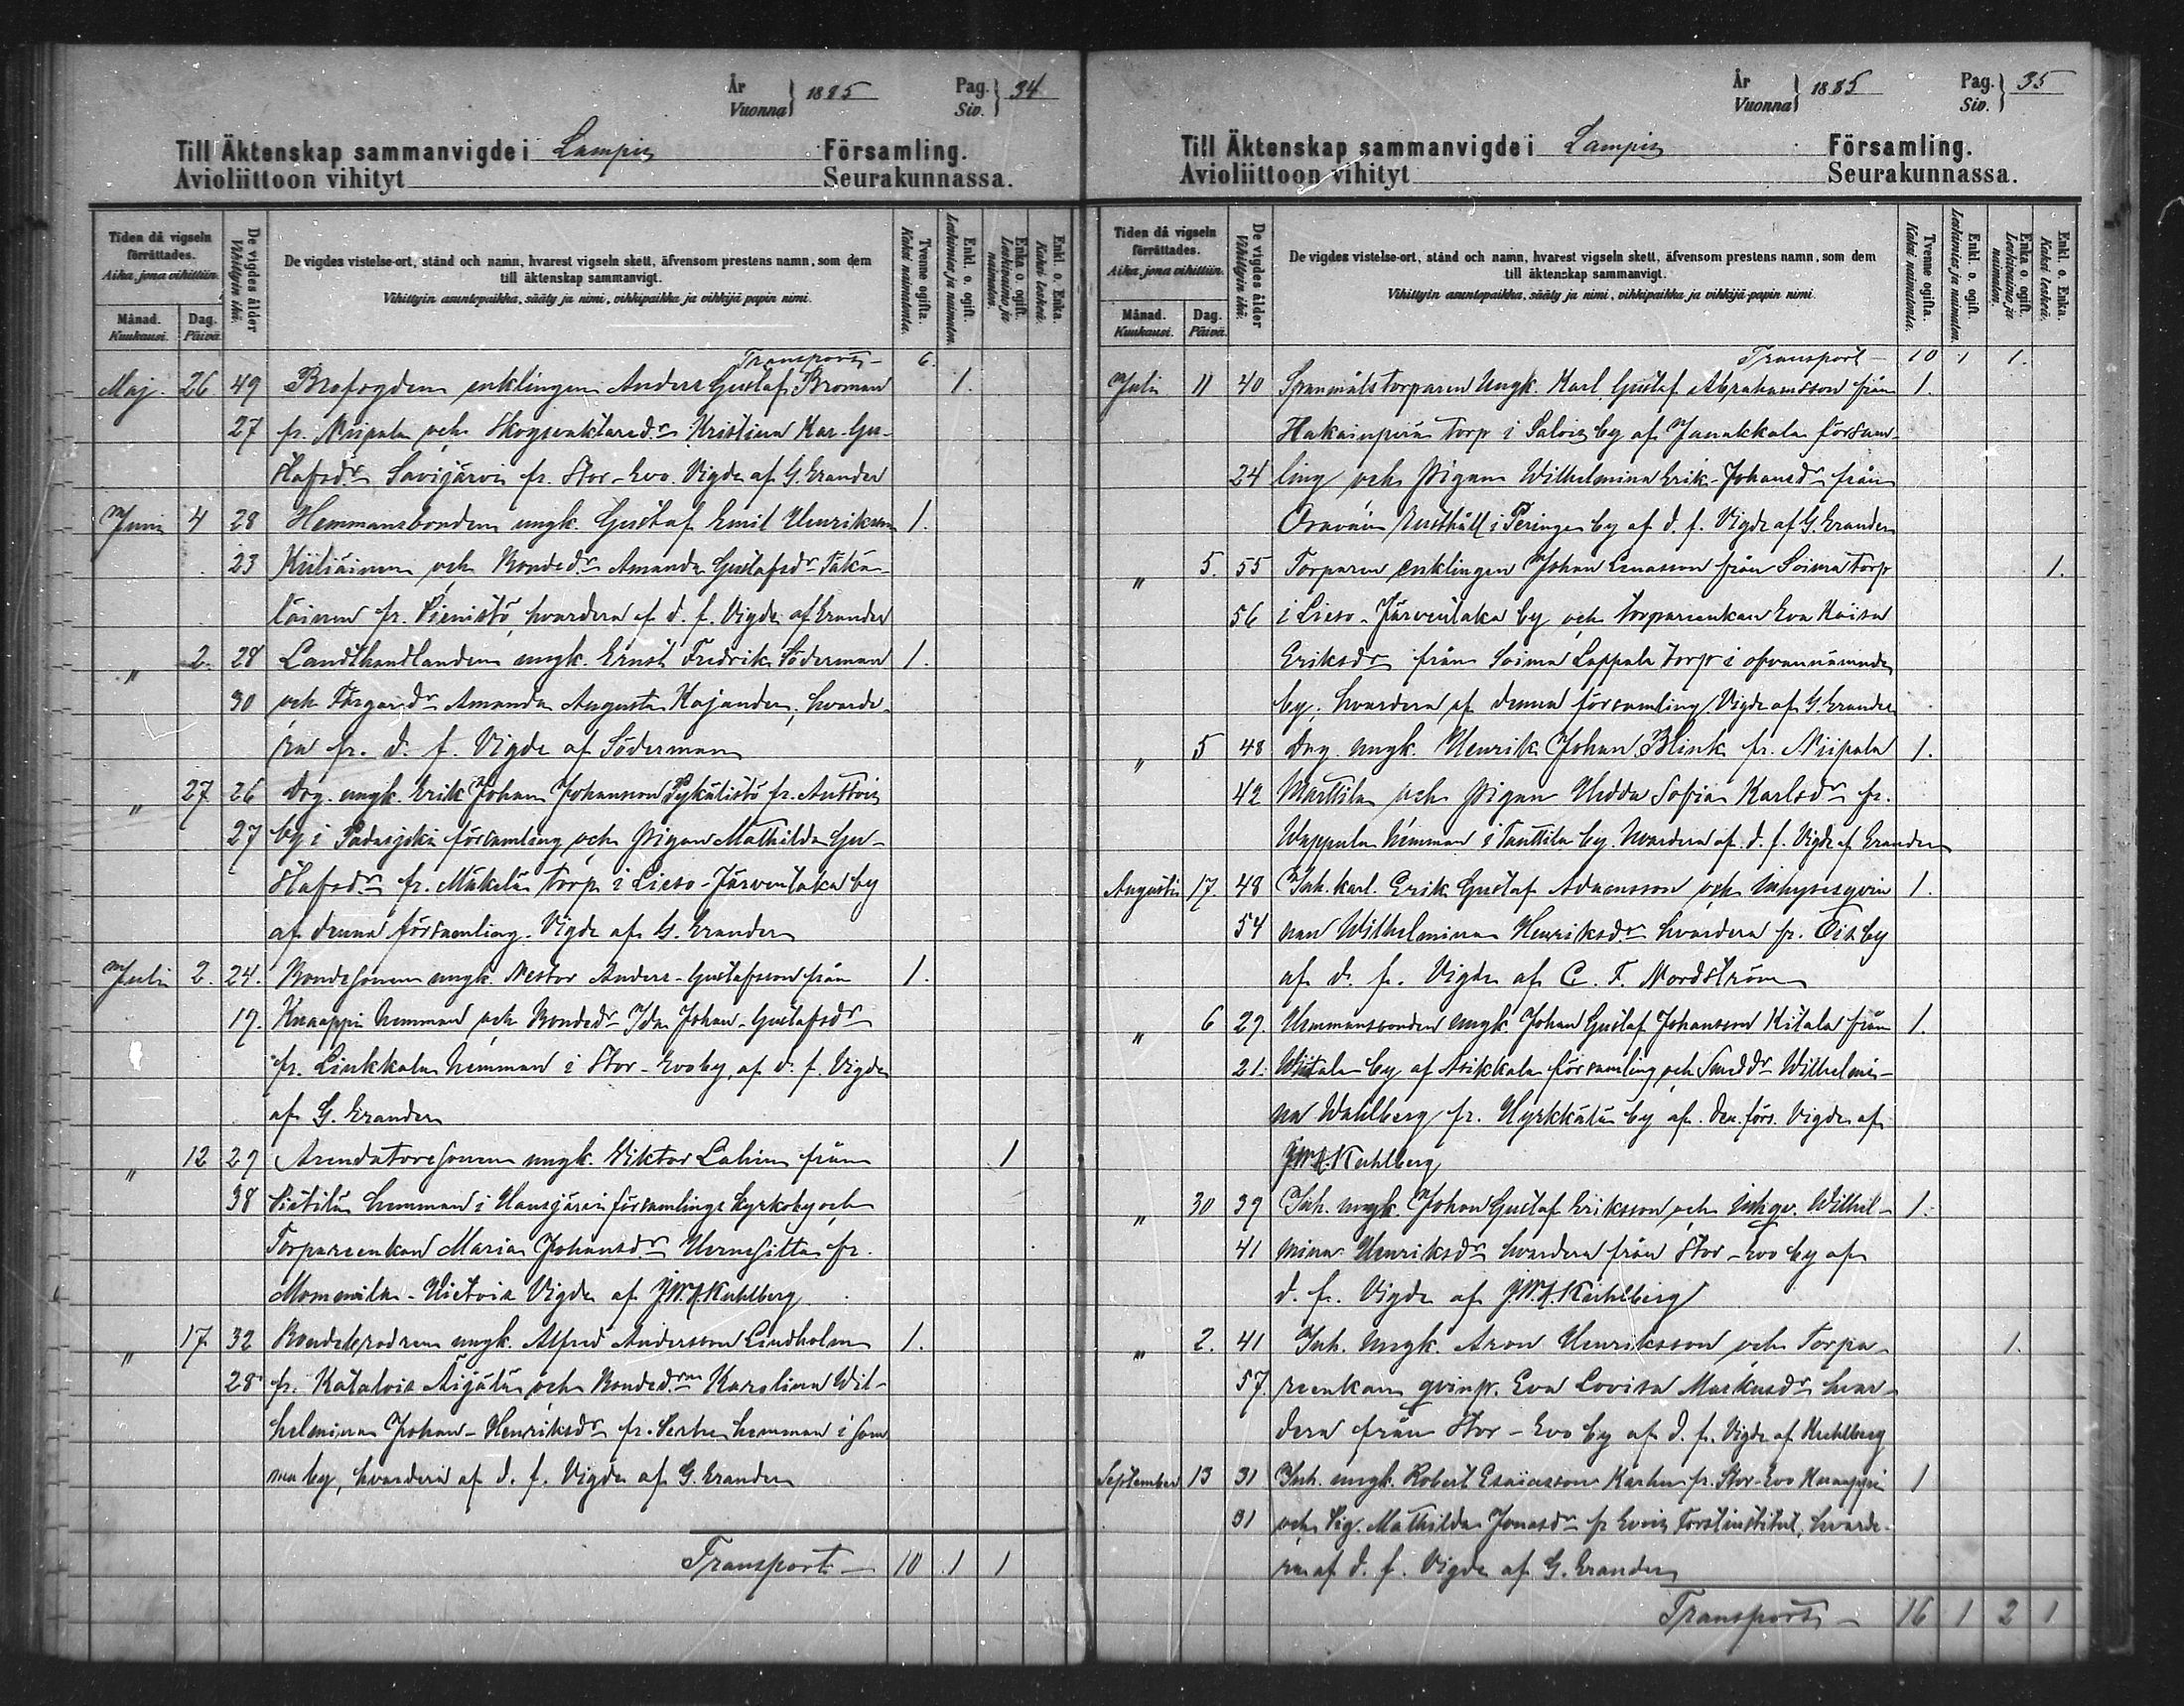 År
Vuonna } 1885
Pag.
Siv. } 34
Till Äktenskap sammanvigde i Lampis Församling.
Avioliittoon vihityt Seurakunnassa.
Tiden då vigseln förrättades.
Aika, jona vihittiin.
Månad.
Kuukausi.
Dag.
Päivä.
De vigdes ålder
Vihittyin ikä.
De vigdes vistelse-ort, stånd och namn, hvarest vigseln skett, äfvensom prestens namn, som dem
till äktenskap sammanvigt.
Vihittyin asuntopaikka, sääty ja nimi, vihkipaikka ja vihkijä papin nimi.
Tvenne ogifta.
Kaksi naimatonta.
Enkl. o. ogift.
Leskimies ja naimaton.
Enka o ogift.
Leskivaimo ja naimaton.
Enkl. o. Enka.
Kaksi leskeä.
Transport 6.
Maj. 26. 49 Brofogden enklingen Anders Gustaf Broman 1.
27 fr. Niipala och Skogvaktared:r Kristina Kar. Gu-
stafsd:r Savijärvi fr. Stor-Evo. Vigde af G. Erander
Juni 4 28 Hemmansbonden ungk. Gustaf Emil Henriksson 1.
23 Kiiliäinen och Bonded:r Amanda Gustafsd:r Takä-
läinen fr. Pienistö, hvardera af d. f. Vigde af Erander
" 2. 28 Landthandlanden ungk. Ernst Fredrik Söderman 1.
30 och Färgared:r Amanda Augusta Kajander, hvarde-
ra fr. d. f. Vigde af Söderman
" 27 26 Drg. ungk. Erik Johan Johansson Pykälistö fr. Auttois
27 by i Padasjoki församling och pigan Mathilda Gu-
stafsd:r fr. Mäkelä torp i Lieso-Järventaka by
af denna församling. Vigde af G. Erander
Juli 2. 24. Bondesonen ungk. Nestor Anders-Gustafsson från 1.
19. Knaappi hemman och Bonded:r Ida Johan-Gustafsd:r
fr. Linkkala hemman i Stor-Evo by, af d. f. Vigde
af G. Erander
" 12 29 Arendatorssonen ungk. Viktor Lahin från 1
38 hemman i Hausjärvi församlings kyrkoby och
Torpareenkan Maria Johansd:r fr.
Mommila- Vigde af J.W.A. Kuhlberg
" 17 32 Bondebrodren ungk. Alfred Andersson Lindholm 1.
28 fr. Katalois Äijälä och Bonded:rn Karolina Wil-
helmina Johan-Henriksd:r fr. Perhe hemman i
by, hvardera af d. f. Vigde af G. Erander
Transport 10 1 1
År
Vuonna } 1885
Pag.
Siv. } 35
Till Äktenskap sammanvigde i Lampis Församling.
Avioliittoon vihityt Seurakunnassa.
Tiden då vigseln förrättades.
Aika, jona vihittiin.
Månad.
Kuukausi.
Dag.
Päivä.
De vigdes ålder
Vihittyin ikä.
De vigdes vistelse-ort, stånd och namn, hvarest vigseln skett, äfvensom prestens namn, som dem
till äktenskap sammanvigt.
Vihittyin asuntopaikka, sääty ja nimi, vihkipaikka ja vihkijä-papin nimi.
Tvenne ogifta.
Kaksi naimatonta.
Enkl. o. ogift.
Leskimies ja naimaton.
Enka o. ogift.
Leskivaimo ja naimaton.
Enkl. o. Enka.
Kaksi leskeä.
Transport 10 1 1.
Juli 11 40 Spanmålstorparen Ungk. Karl Gustaf Abrahamsson från 1.
torp i Salois by af Janakkala försam-
24 ling och pigan Wilhelmina Erik-Johansd:r från
Rusthåll i Peringe by af d. f. Vigde af G. Erander
" 5. 55 Torparen enklingen Johan Enasson från Soima torp 1.
56 i Lieso-Järventaka by och torpareenkan Eva Kaisa
Eriksd:r från Soima Lappala torp i ofvannämnde
by, hvardera af denna församling. Vigde af G. Erander
" 5 48 Drg. ungk. Henrik Johan Blink fr. Niipala 1.
42 Marttila och pigan Hedda Sofia Karlsd:r fr.
Wappula hemman i Tanttila by. hvardera af d. f. Vigde af Erander
Augusti 17. 48 Inh. karl. Erik Gustaf Adamsson och inhysesqvin 1.
54 nan Wilhelmina Henriksd:r hvardera fr. by
af d. f. Vigde af C. F. Nordström
" 6 29. Hemmansbonden ungk. Johan Gustaf Johansson från 1.
21. by af Asikkala församling och Smedd:r Wilhelmi-
na Wahlberg fr. Hyrkkälä by af den. förs. Vigde af
J.W.A. Kuhlberg
" 30 39 Inh. ungk. Johan Gustaf Eriksson och inhqv. Wilhel- 1.
41 mina Henriksd:r hvardera från Stor-Evo by af
d. f. Vigde af J.W.A. Kuhlberg
" 2. 41 Inh. ungk. Aron Henriksson och Torpa- 1.
57. reenkan qvinp. Eva Lovisa Markusd:r hvar-
dera från Stor-Evo by af d. f. Vigde af Kuhlberg
September 13 31 Inh. ungk. Robert Esaiasson Karhu fr. Stor-Evo Knaappi 1
31 och Pig. Mathilda Jonasd:r fr Evois Forstinstitut, hvarde-
ra af d. f. Vigde af G. Erander
Transport 16 1 2 1